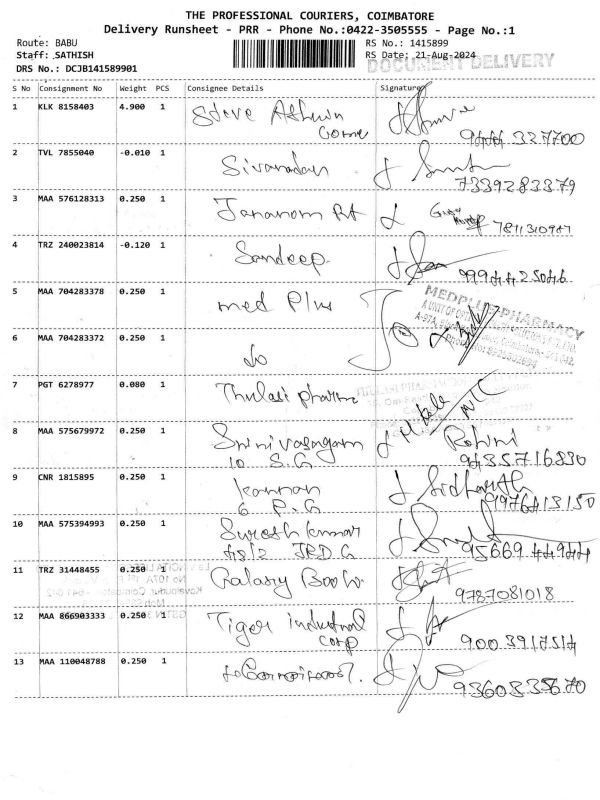 THE PROFESSIONAL COURIERS, COIMBATORE
Delivery Runsheet - PRR - Phone No.:0422-3505555 - Page No.:1
Route: BABU RS No.: 1415899
Staff: SATHISH RS Date: 21-Aug-2024
DRS No.: DCJB141589901 DOCUMENT DELIVERY
S No Consignment No Weight PCS Consignee Details Signature
1 KLK 8158403 4.900 1 Steve Ashwin
9444 327700
2 TVL 7855040 -0.010 1 Sivanadan
7339283379
3 MAA 576128313 0.250 1
7811310947
4 TRZ 240023814 -0.120 1 Sandeep
99944 25046
5 MAA 704283378 0.250 1 med Plus
MEDPLUS PHARMACY
6 MAA 704283372 0.250 1 do
7 PGT 6278977 0.080 1 Thulasi pharma
8 MAA 575679972 0.250 1 Srinivasagam Rohini
10 S.G 9435716830
9 CNR 1815895 0.250 1 Kannan Sidharth
6 P.G 9976413150
10 MAA 575394993 0.250 1 Suresh kumar
95669 44944
11 TRZ 31448455 0.250 1
9787081018
12 MAA 866903333 0.250 1 Tiger industrial
corp 9003917514
13 MAA 110048788 0.250 1